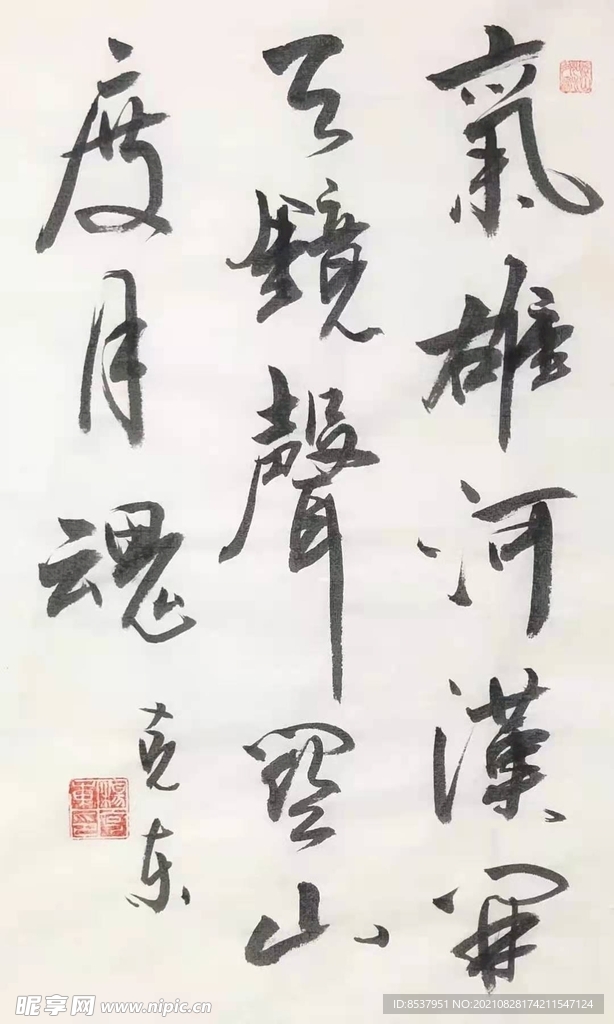 氣雄河漢開
天鏡聲關山
度月魂
克东
昵享网 www.nipic.cn
ID:8537951 NO:20210828174211547124